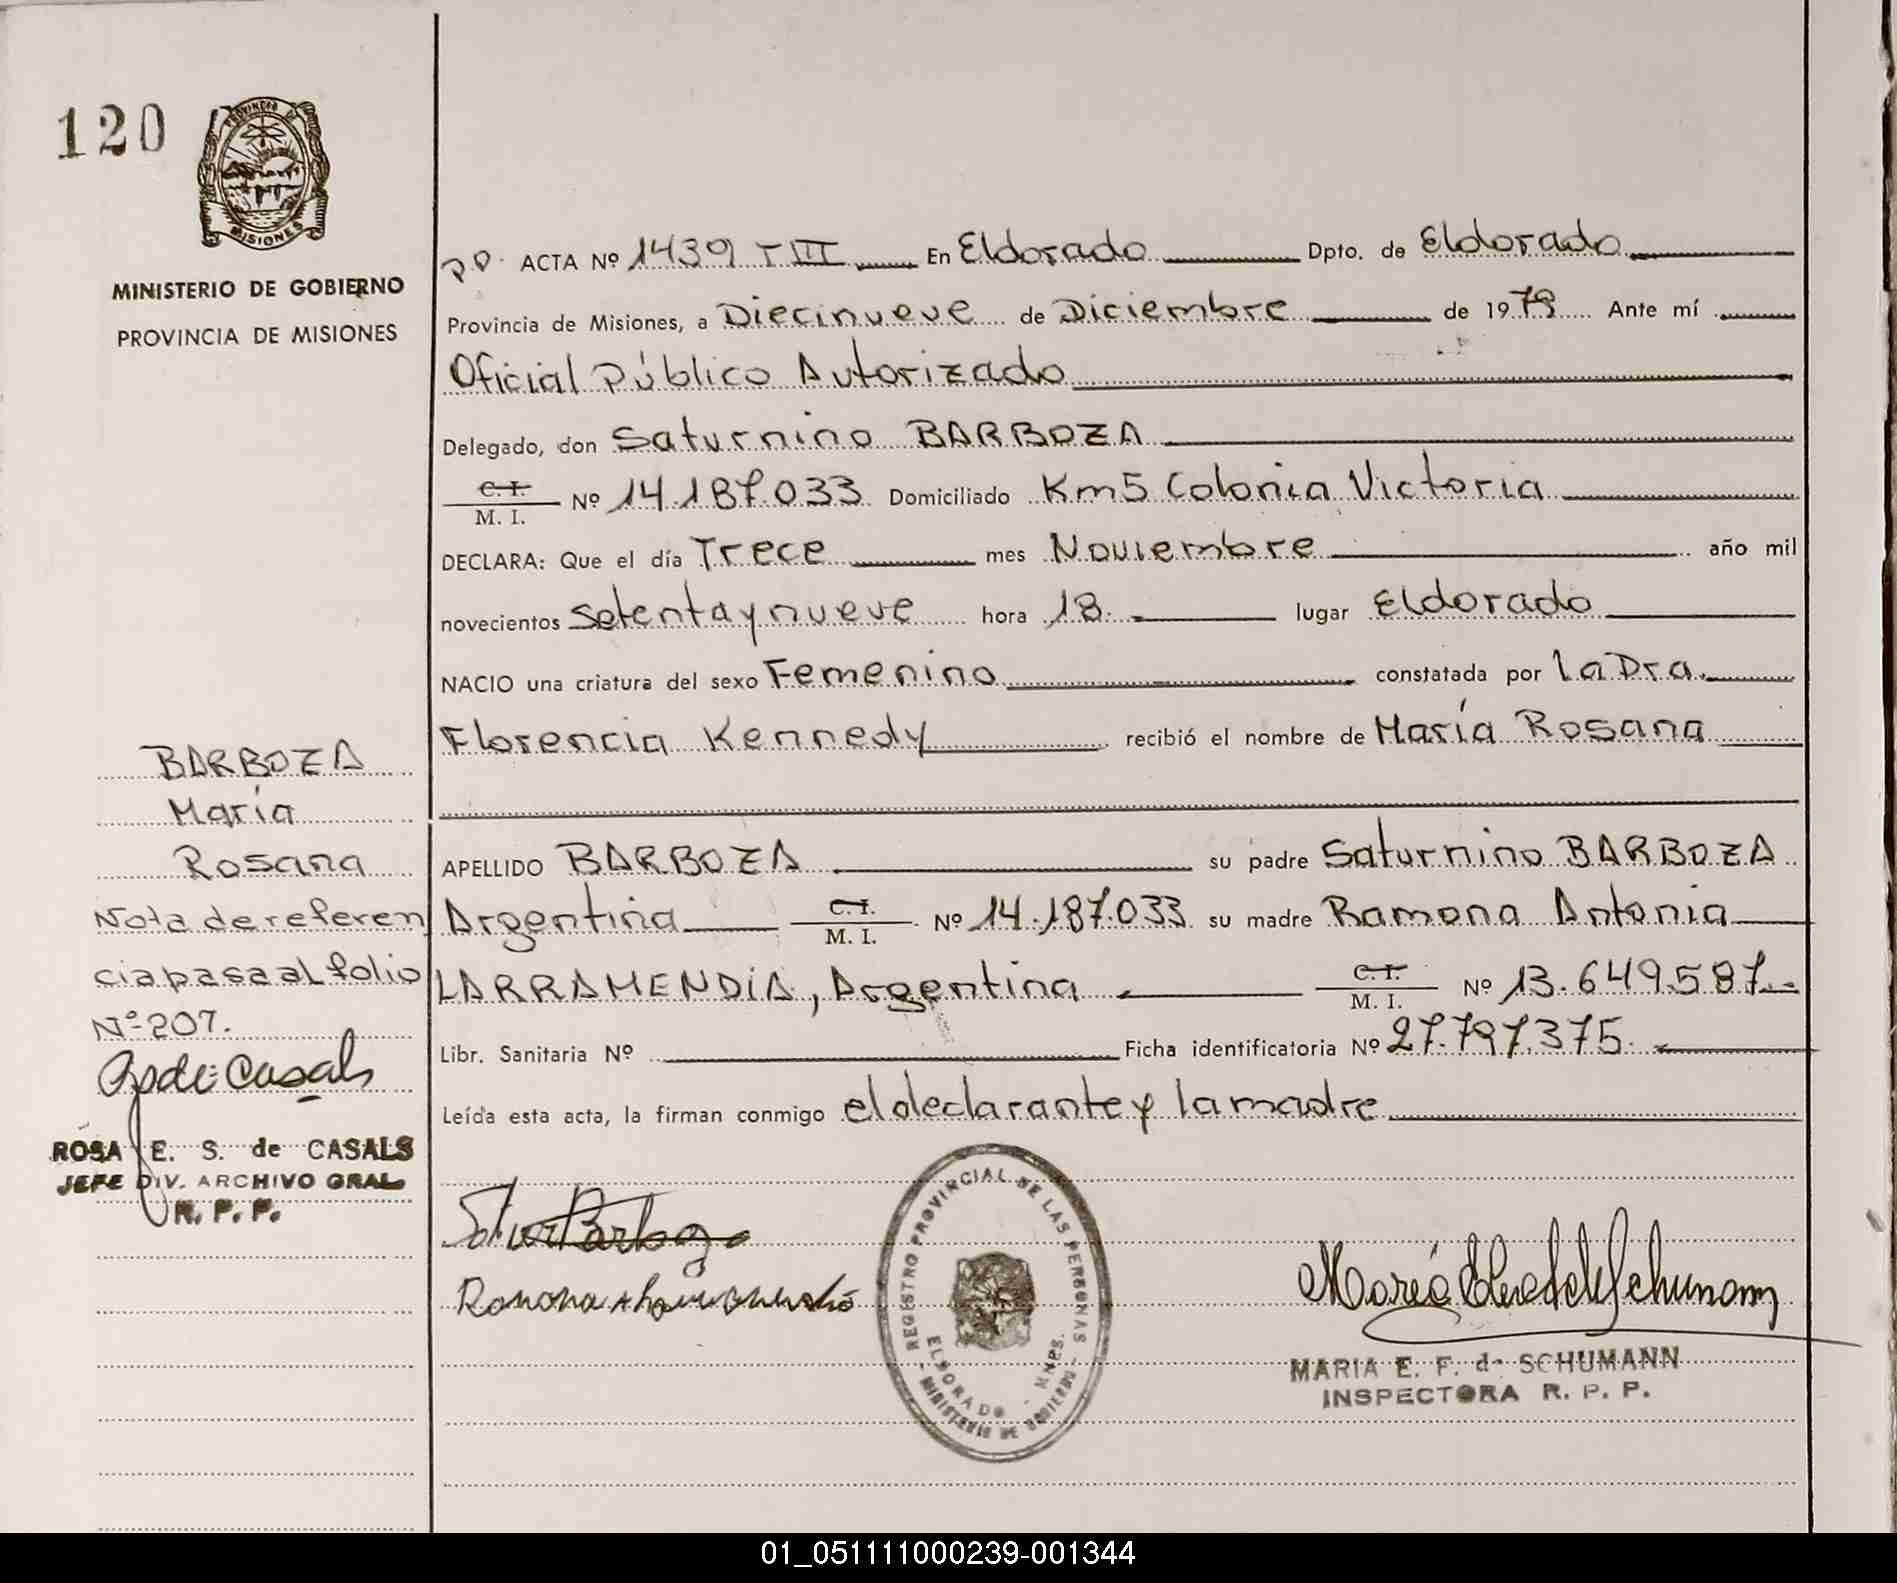 120
PROVINCIA DE
MISIONES
MINISTERIO DE GOBIERNO
PROVINCIA DE MISIONES
ACTA Nº 1439 T III En Eldorado Dpto. de Eldorado
Provincia de Misiones, a Diecinueve de Diciembre de 1979 Ante mí
Oficial Público Autorizado
Delegado, don Saturnino BARBOZA
C. I.
M. I. Nº 14.187.033 Domiciliado Km5 Colonia Victoria
DECLARA: Que el día Trece mes Noviembre año mil
novecientos setenta y nueve hora 18. lugar Eldorado
NACIO una criatura del sexo Femenino constatada por la Dra.
Florencia Kennedy recibió el nombre de María Rosana
APELLIDO BARBOZA su padre Saturnino BARBOZA
Argentina C. I.
M. I. Nº 14.187.033 su madre Ramona Antonia
LARRAMENDIA, Argentina C. I.
M. I. Nº 13.649.587
Libr. Sanitaria Nº Ficha identificatoria Nº 27.797.375.
Leída esta acta, la firman conmigo el declarante y la madre
BARBOZA
María
Rosana
Nota de referen
cia pasa al folio
Nº 207.
de Casals
ROSA E. S. de CASALS
JEFE DIV. ARCHIVO GRAL
R. P. P.
Barboza
Ramona
REGISTRO PROVINCIAL DE LAS PERSONAS
ELDORADO - MNES.
MINISTERIO DE GOBIERNO
María de Schumann
MARIA E. F. de SCHUMANN
INSPECTORA R. P. P.
01_051111000239-001344